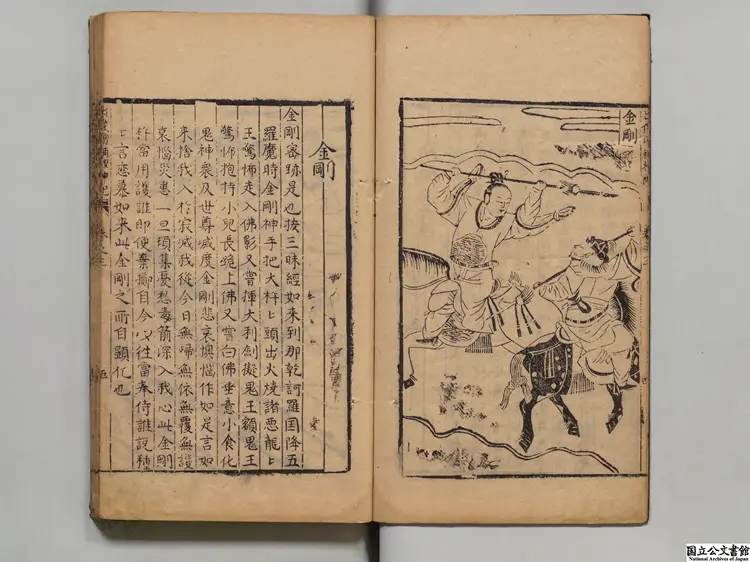 金剛
金剛
金剛密跡是也按三昧經如來到那乾訶羅国降五
羅魔時金剛神手把大杵〻頭出火燒諸悪龍〻
王驚怖走入佛影又嘗揮大利劍擬鬼王額鬼王
驚怖抱持小兒長跪上佛又嘗白佛垂意小食化
鬼神衆及世尊威度金剛悲哀懊惱作如是言如
来捨我入於寂滅我從今日無歸無依無覆無護
衰惱災患一旦頃集憂愁毒箭深入我心此金剛
杵當用護誰即便棄擲自今以往當奉侍誰說種
〻言恋慕如来此金剛之所自顯化也
国立公文書館
National Archives of Japan